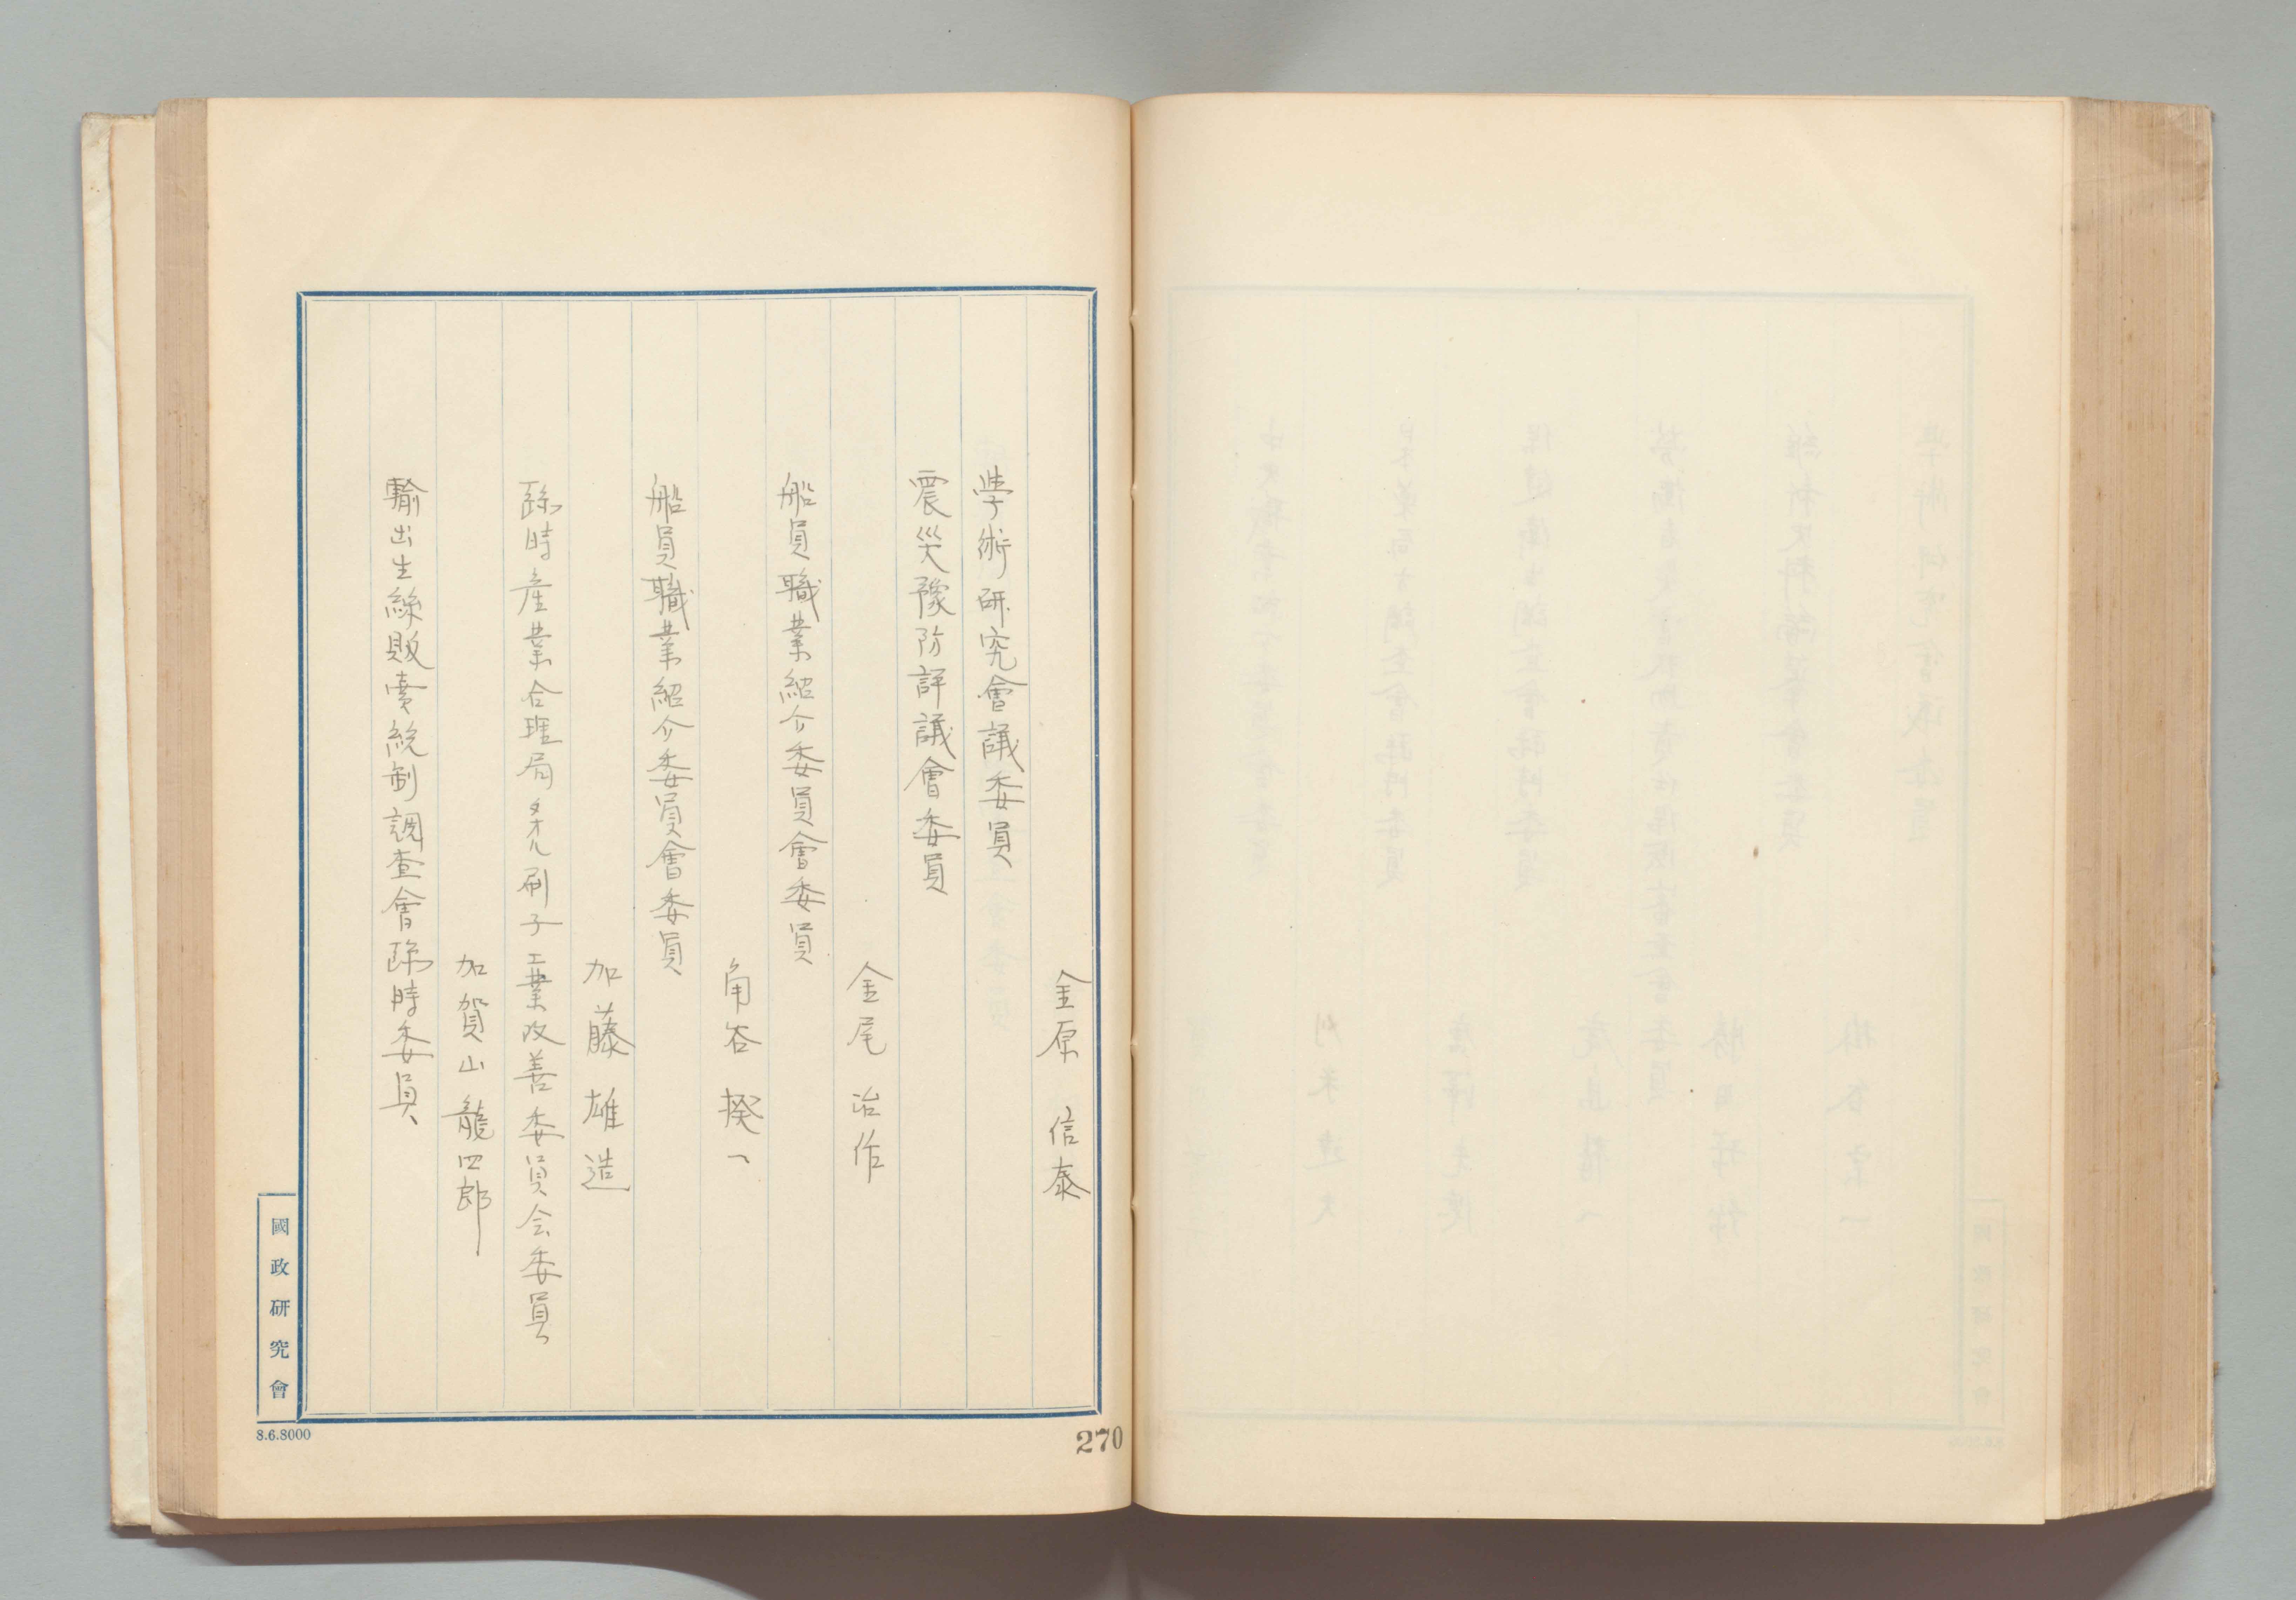 金原信泰
學術研究會議委員
震災豫防評議會委員
金尾治作
船員職業紹介委員會委員
角谷揆一
船員職業紹介委員會委員
加藤雄造
臨時産業合理局タオル刷子工業改善委員会委員
加賀山龍四郎
輸出生絲販賣統制調査會臨時委員
國政研究會
8.6.8000
270